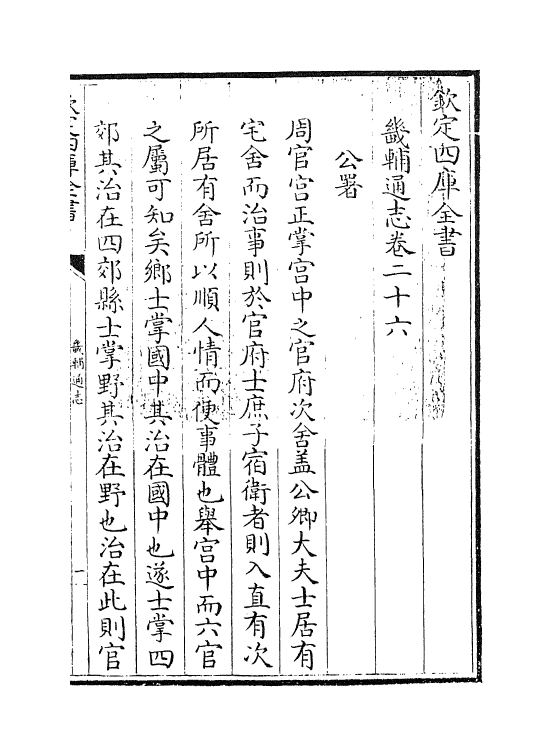 欽定四庫全書
畿輔通志卷二十六
公署
周官宫正掌宫中之官府次舍盖公卿大夫士居有
宅舍而治事則於官府士庶子宿衛者則入直有次
所居有舍所以順人情而便事體也舉宫中而六官
之屬可知矣鄉士掌國中其治在國中也遂士掌四
郊其治在四郊縣士掌野其治在野也治在此則官
欽定四庫全書
畿輔通志
一